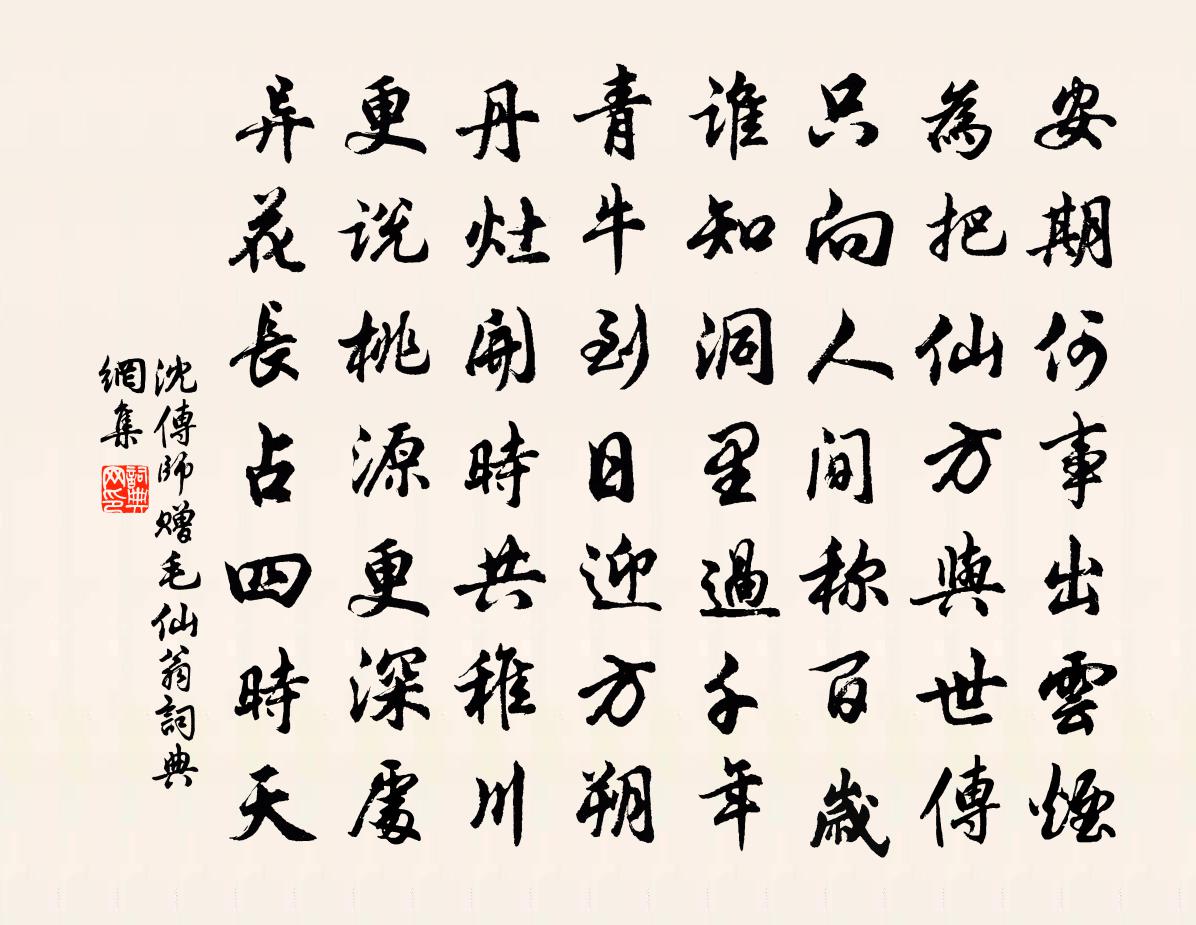 安期何事出雲煙
為把仙方與世傳
只向人間称百歲
谁知洞里過千年
青牛到日迎方朔
丹灶開時共稚川
更说桃源更深處
异花長占四時天
沈傳師赠毛仙翁詞典
網集
詞典
网印